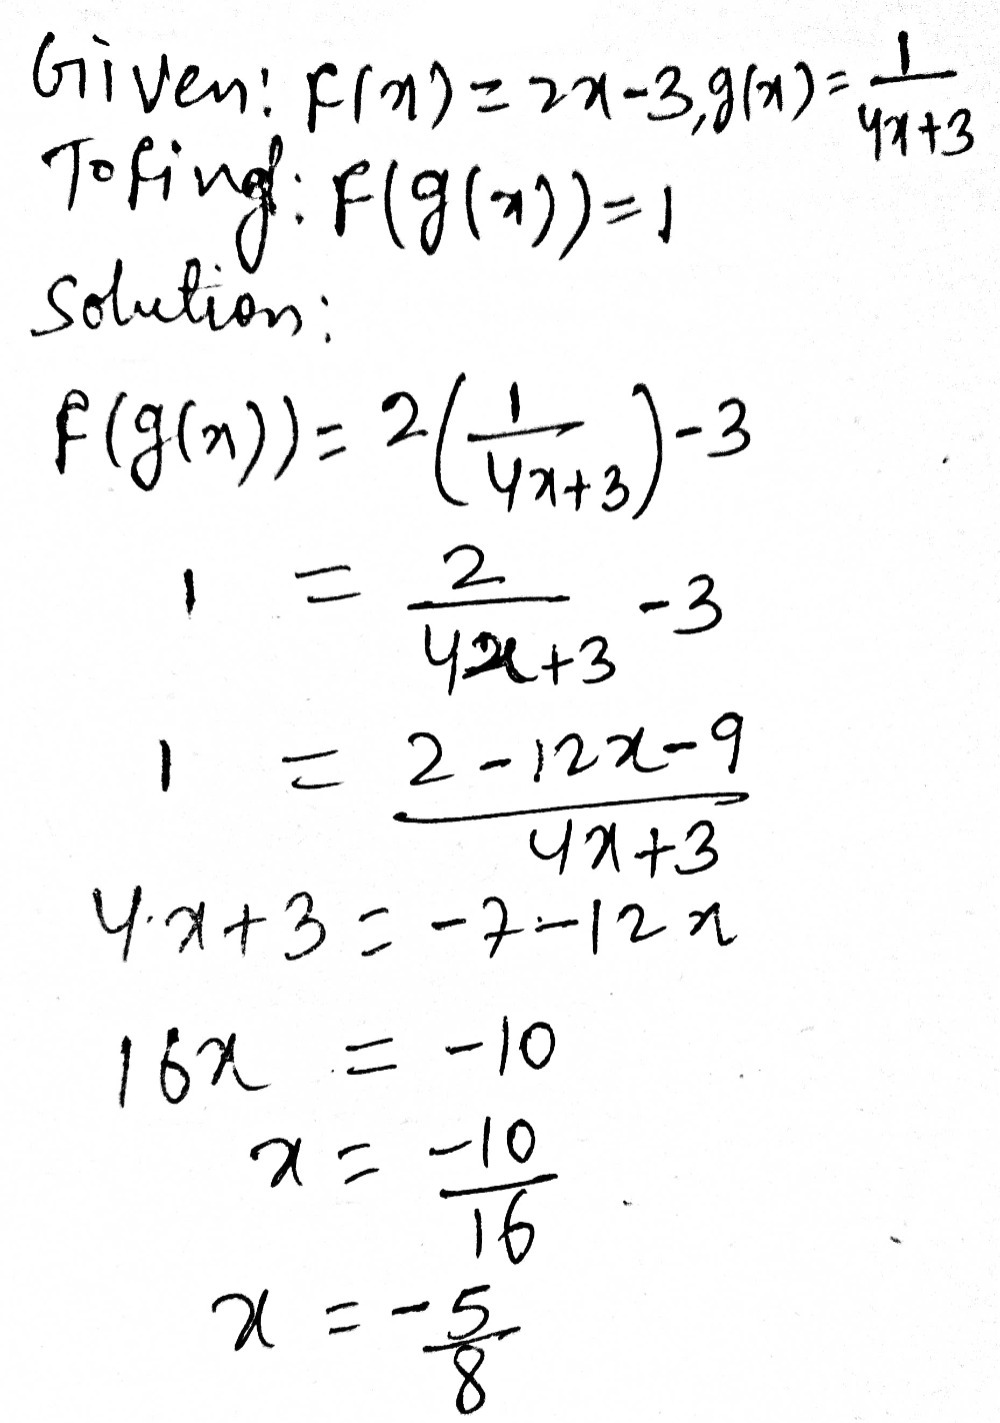 Given: F(x) = 2x-3, g(x) = 1/(4x+3)
To find: F(g(x)) = 1
Solution:
F(g(x)) = 2(1/(4x+3)) - 3
1 = 2/(4x+3) - 3
1 = (2-12x-9)/(4x+3)
4x+3 = -7-12x
16x = -10
x = -10/16
x = -5/8